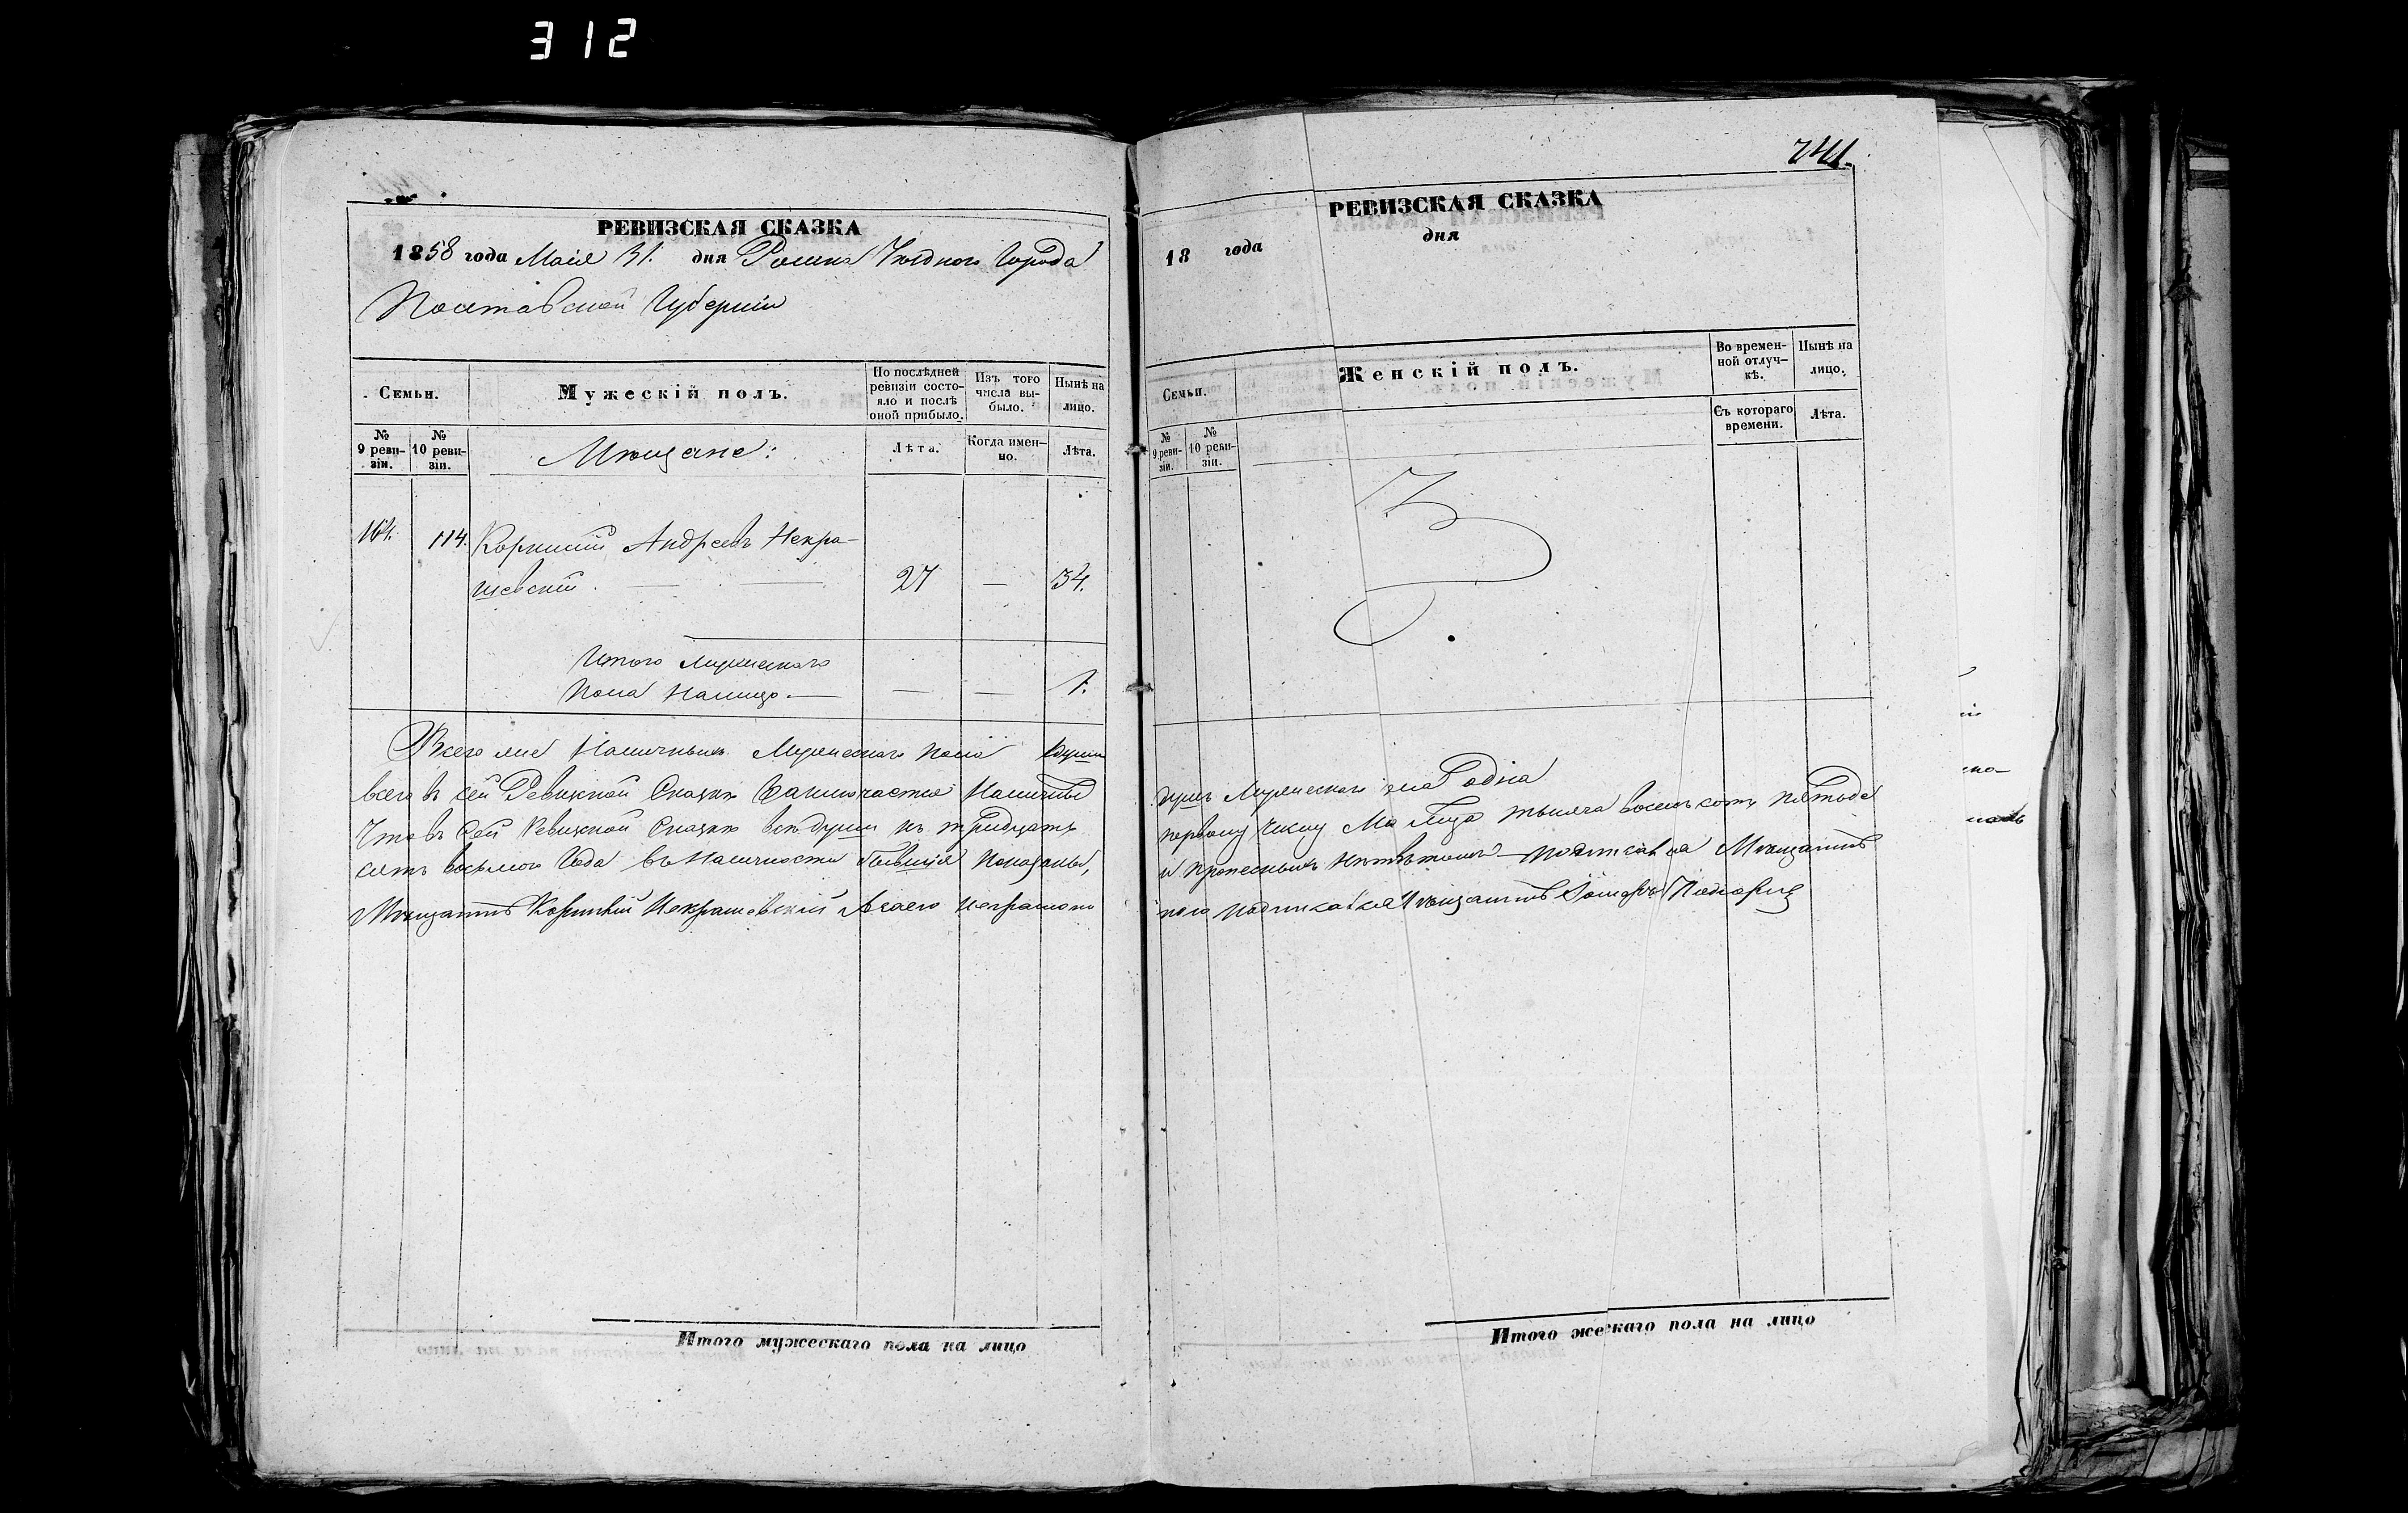 312
РЕВИЗСКАЯ СКАЗКА
1858 года Маія 31. дня Ромна Уѣзднаго Города
Полтавской Губерніи
Семьи.
Мужескій полъ.
По послѣдней ревизіи состояло и послѣ оной прибыло.
Изъ того числа выбыло.
Нынѣ на лицо.
№ 9 ревизіи.
№ 10 ревизіи.
Мѣщане:
Лѣта.
Когда именно.
Лѣта.
164. 114. Корнилій Андреевъ Некра-
шевскій. — — 27 — 34.
Итого мужескаго
пола налицо. — — — 1.
Всего наличныхъ мужескаго пола
всего въ сей Ревизкой Сказки Заключается наличныхъ
Что въ сей Ревизкой Сказки всѣ души къ тридцать
сятъ восьмого Года въ наличности бывшія показаны,
Мѣщанинъ Корнилій Некрашевскій а за его неграмотно
Итого мужескаго пола на лицо
241.
РЕВИЗСКАЯ СКАЗКА
18 года дня
Семьи.
Женскій полъ.
Во временной отлучкѣ.
Нынѣ на лицо.
№ 9 ревизіи.
№ 10 ревизіи.
Съ котораго времени.
Лѣта.
душъ Мужескаго пола одна
первому числу Маія тысяча восемь сотъ пятьде
и прописныхъ нѣтъ подписался Мѣщанинъ
подписался Мѣщанинъ
Итого жескаго пола на лицо